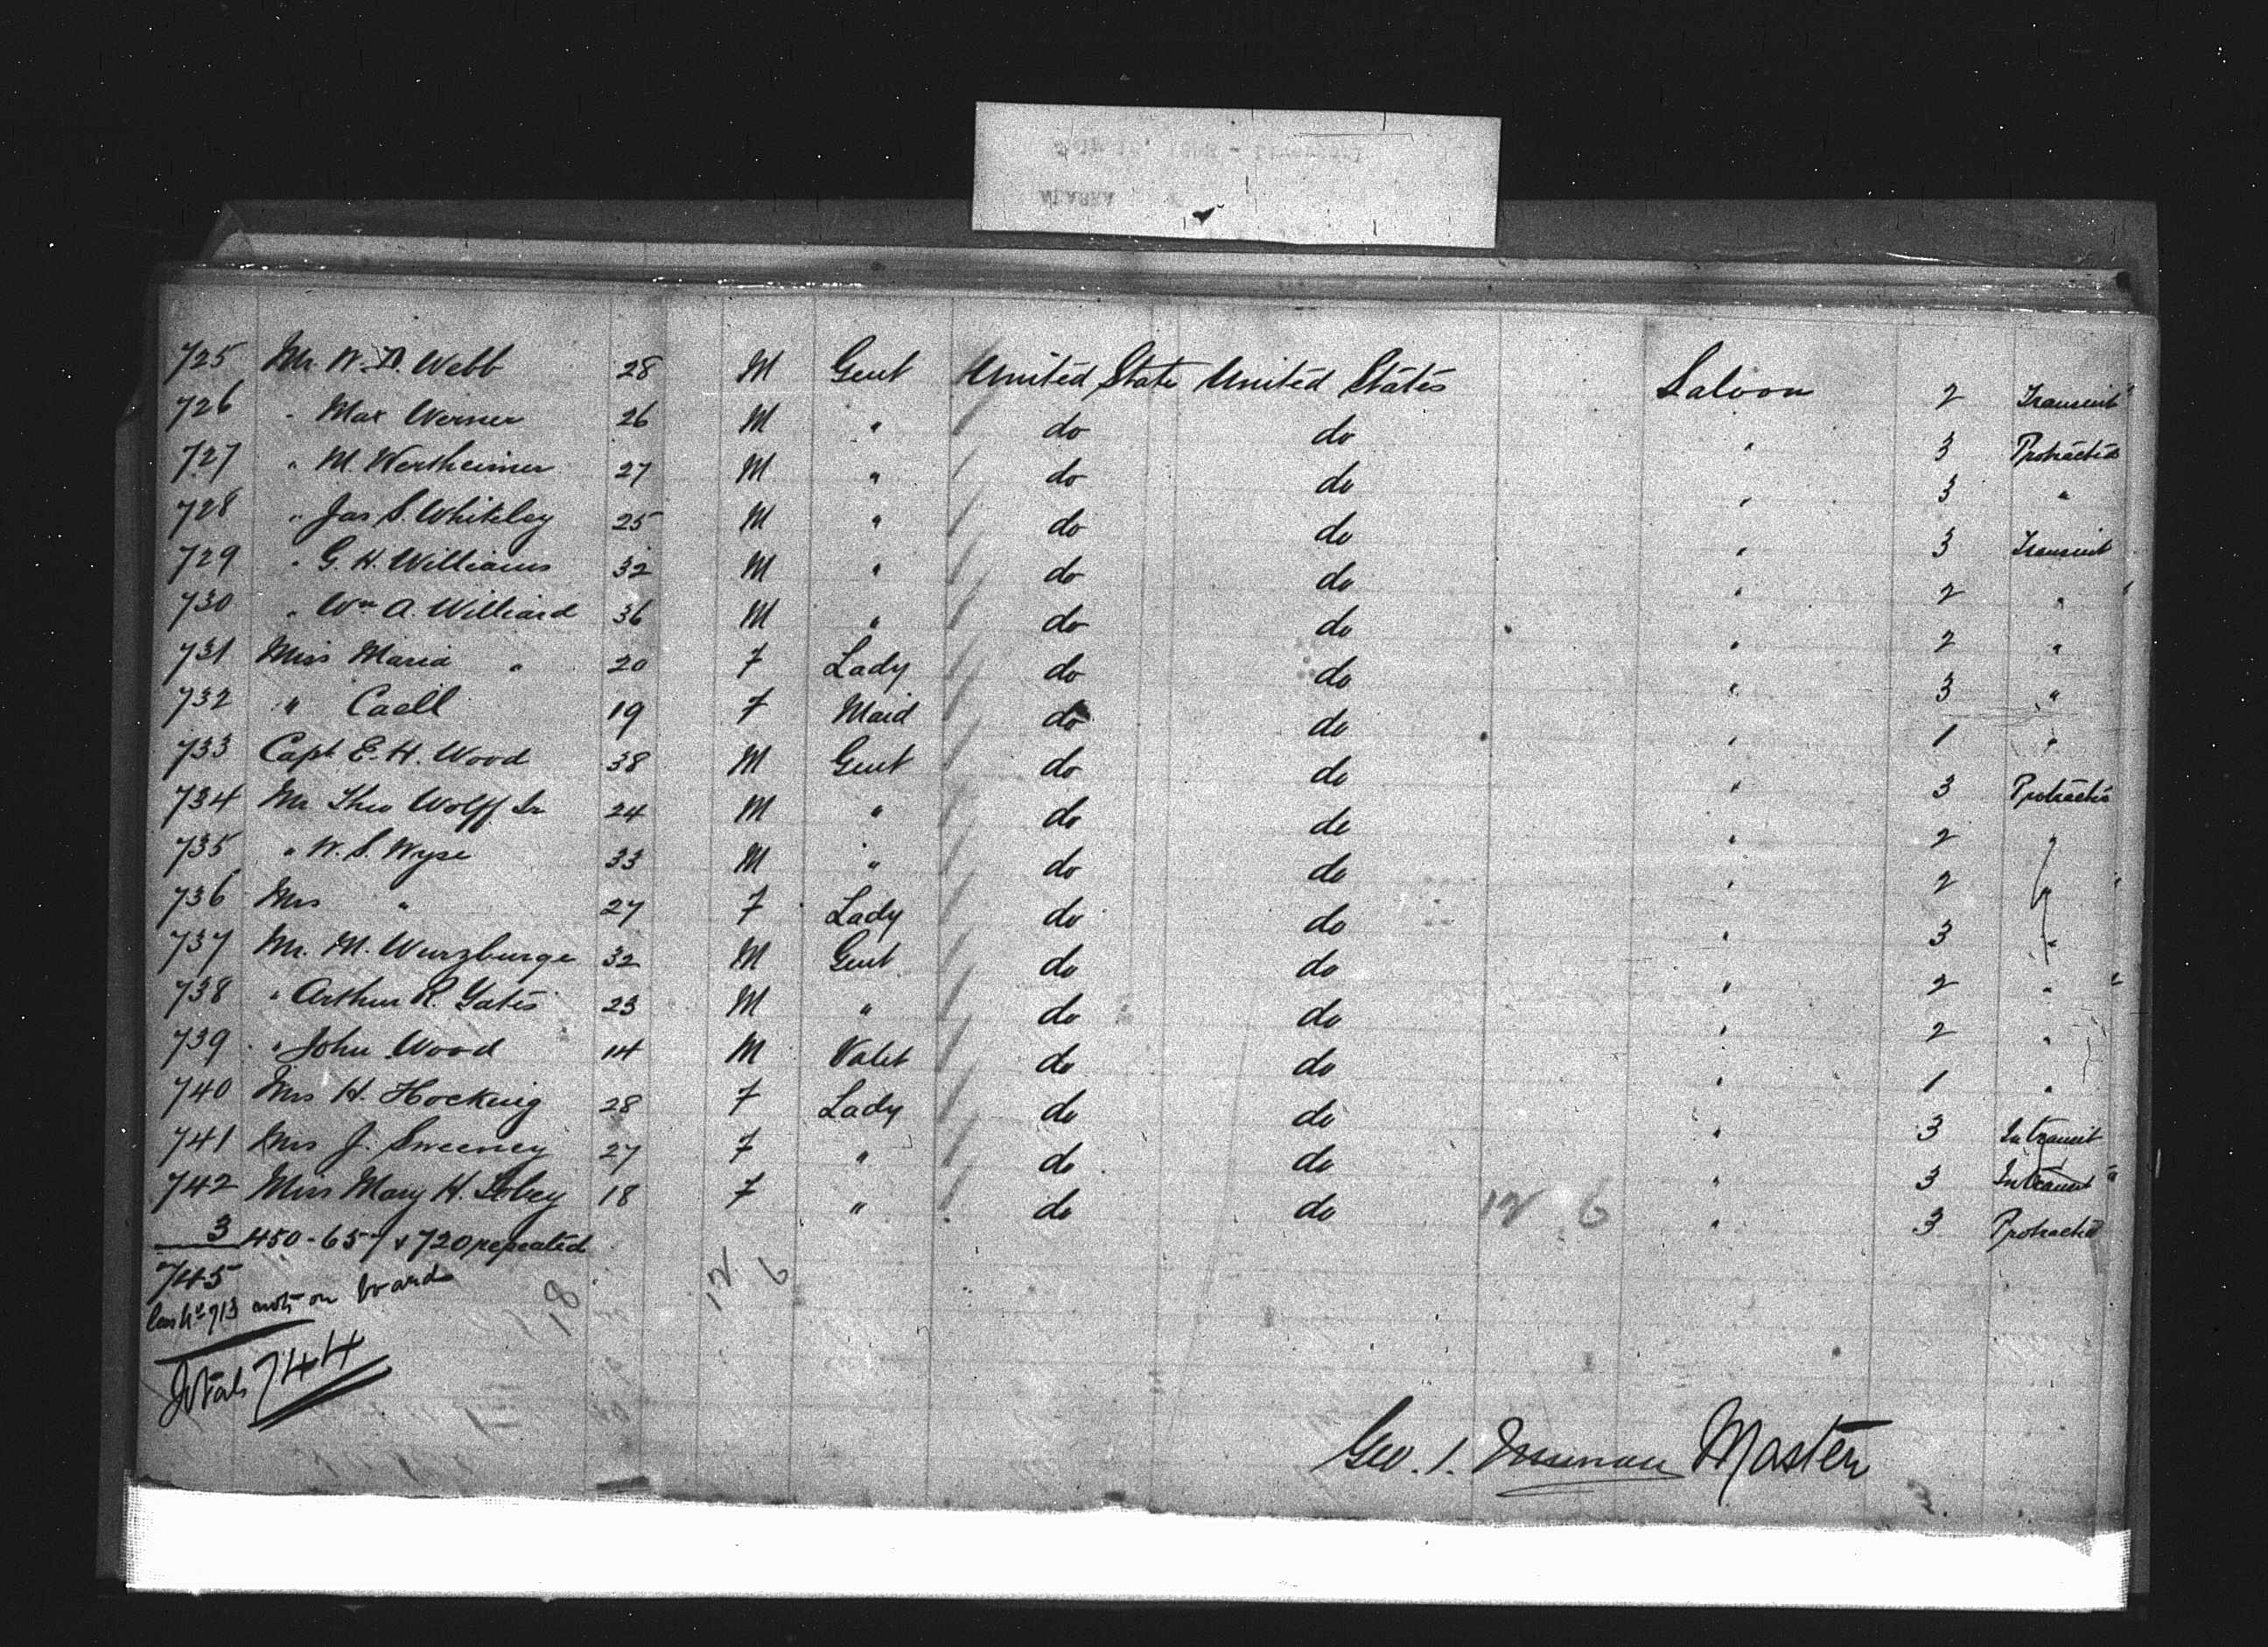 725 Mr. W. D. Webb 28 M Gent United State United States Saloon 2 Transit
726 " Max Werner 26 M " do do " 3 Protracted
727 " M. Wertheimer 27 M " do do " 3 "
728 " Jas S. Whiteley 25 M " do do " 3 Transit
729 " G. H. Williams 32 M " do do " 2 "
730 " Wm A. Williard 36 M " do do " 2 "
731 Miss Maria " 20 F Lady do do " 3 "
732 " Caell 19 F Maid do do " 1 "
733 Capt E. H. Wood 38 M Gent do do " 3 Protracted
734 Mr Theo Wolff Jr 24 M " do do " 2 "
735 " W. S. Wyse 33 M " do do " 2 "
736 Mrs " 27 F Lady do do " 3 "
737 Mr. M. Wurzburge 32 M Gent do do " 2 "
738 " Arthur R. Yates 23 M " do do " 2 "
739 " John Wood 14 M Valet do do " 1 "
740 Mrs H. Hocking 28 F Lady do do " 3 In transit
741 Mrs J. Sweeney 27 F " do do " 3 In transit "
742 Miss Mary H. 18 F " do do 12 6 " 3 Protracted
3 450-657 & 720 repeated
745 18 12 6
less No 713 not on board
Total 744
Geo. Master